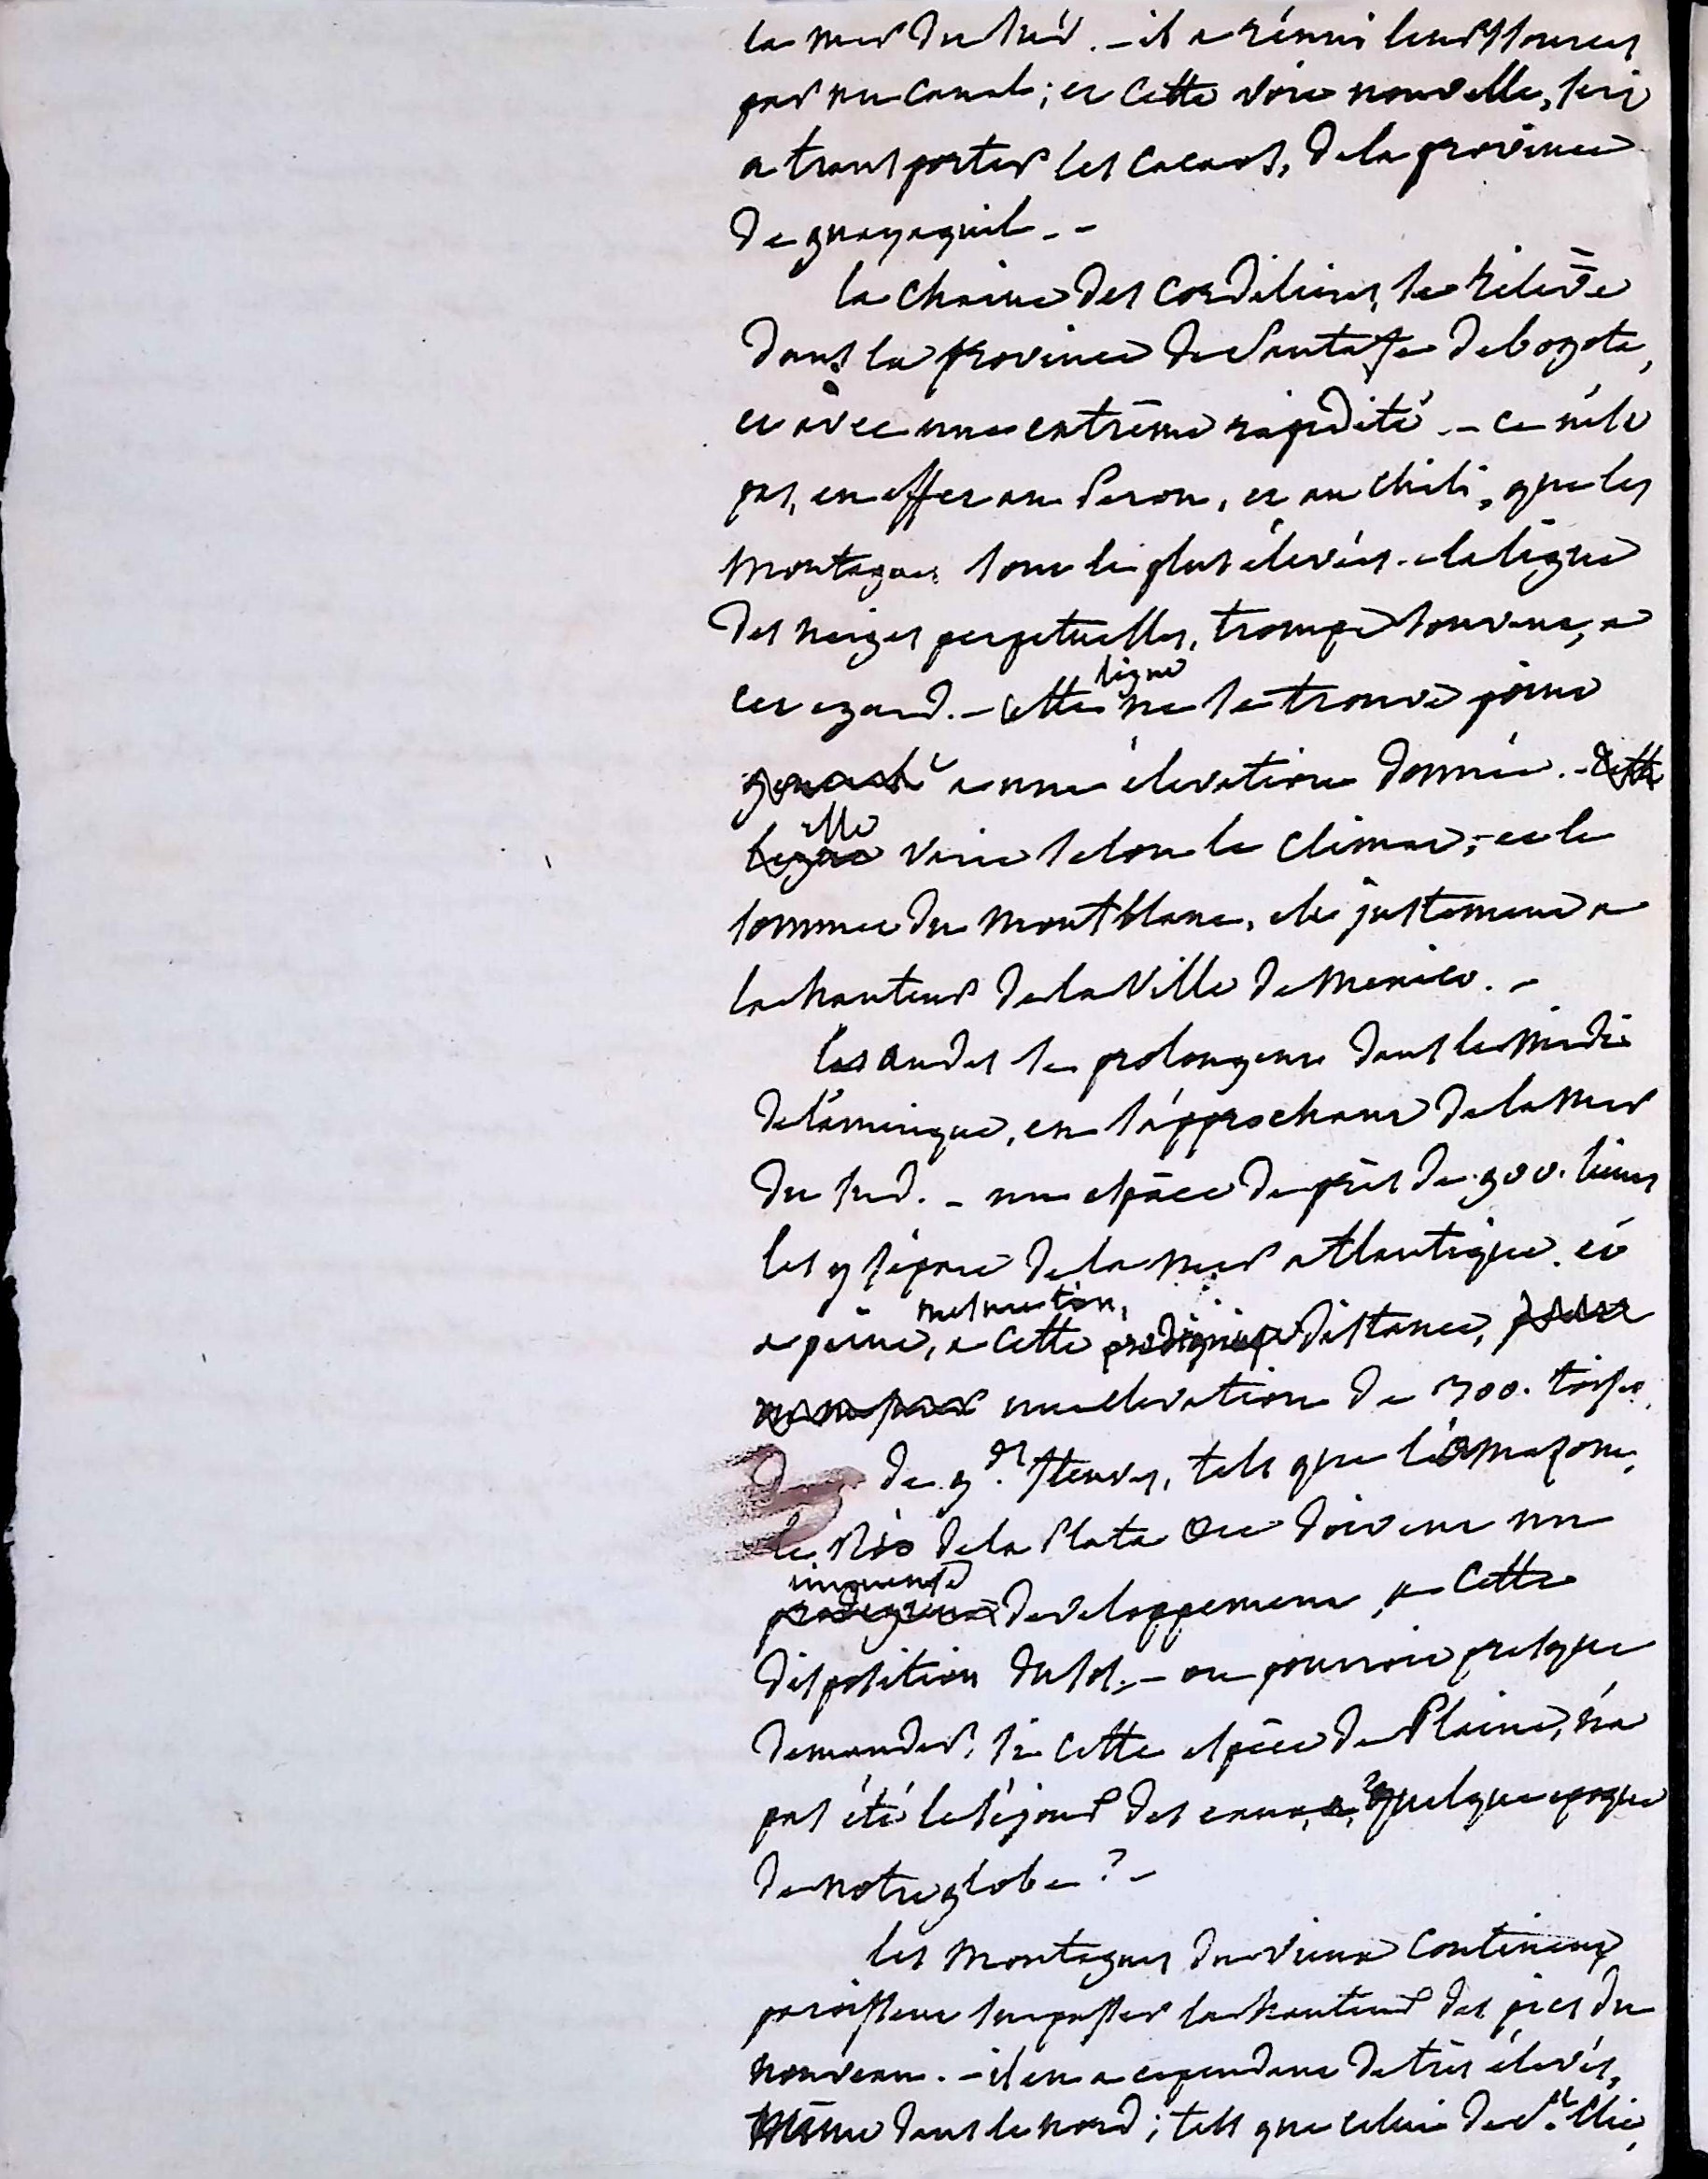 la mer du sud. – il a réuni leurs sources
par un canal ; et cette voie nouvelle, sert
a transporter les cacaos, de la province
de guayaquil. –
la chaine des cordilières, se relève
dans la province de Santa fe de bogota,
et avec une extrême rapidité. – ce n'est
pas, en effet au Perou, et au Chili, que les
montagnes sont le plus élevées. – la ligne
des neiges perpetuelles, trompe souvent, a
cet egard. – cette ligne ne se trouve point
a une élevation donnée. – cette
ligne elle varie selon le climat ; et le
sommet du mont blanc, est justement a
la hauteur de la ville de Mexico. –
les andes se prolongent dans le midi
de l'amérique, en s'approchant de la mer
du sud. – un espace de près de 900. lieues
les y sépare de la mer atlantique. et
a peine, a cette prodigieuse distance,
une élevation de 300. toises.
de gds. fleuves, tels que l'amazone,
le Rio de la Plata &c doivent un
immense developpement, a cette
disposition du sol. – on pourroit presque
demander, si cette espèce de Plaine, n'a
pas été le séjour des eaux, a quelque epoque
de notre globe ? –
les montagnes du vieux continent
paroissent surpasser la hauteur des pics du
nouveau. – il en a cependant de très élevés,
même dans le nord ; tels que celui de St. Elie,